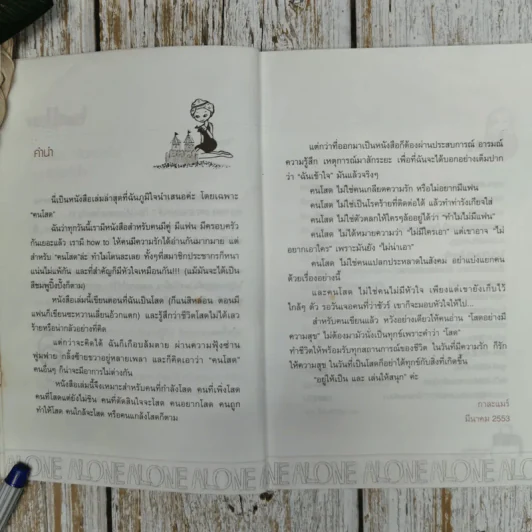 คำนำ
นี่เป็นหนังสือเล่มล่าสุดที่ฉันภูมิใจนำเสนอค่ะ โดยเฉพาะ
"คนโสด"
ฉันว่าทุกวันนี้เรามีหนังสือสำหรับคนมีคู่ มีแฟน มีครอบครัว
กันเยอะแล้ว เรามี how to ให้คนมีความรักได้อ่านกันมากมาย แต่
สำหรับ "คนโสด"ล่ะ ทำไมโดนละเลย ทั้งๆที่สมาชิกประชากรก็หนา
แน่นไม่แพ้กัน และที่สำคัญก็มีหัวใจเหมือนกัน!!! (แม้มันจะได้เป็น
สีชมพูปิ๊งปิ๊งก็ตาม)
หนังสือเล่มนี้เขียนตอนที่ฉันเป็นโสด (ก็แน่สิหล่อน ตอนมี
แฟนก็เขียนซะหวานเลี่ยนอ้วกแตก) และรู้สึกว่าชีวิตโสดไม่ได้เลว
ร้ายหรือน่ากลัวอย่างที่คิด
แต่กว่าจะคิดได้ ฉันก็เกือบล้มตาย ผ่านความฟุ้งซ่าน
ฟูมฟาย กลิ้งซ้ายขวาอยู่หลายเพลา และก็คิดเอาว่า "คนโสด"
คนอื่นๆ ก็น่าจะมีอาการไม่ต่างกัน
หนังสือเล่มนี้จึงเหมาะสำหรับคนที่กำลังโสด คนที่เพิ่งโสด
คนที่โสดแต่ยังไม่ชิน คนที่ตัดสินใจจะโสด คนอยากโสด คนถูก
ทำให้โสด คนใกล้จะโสด หรือคนแกล้งโสดก็ตาม
แต่กว่าที่ออกมาเป็นหนังสือก็ต้องผ่านประสบการณ์ อารมณ์
ความรู้สึก เหตุการณ์มาสักระยะ เพื่อที่ฉันจะได้บอกอย่างเต็มปาก
ว่า "ฉันเข้าใจ" มันแล้วจริงๆ
คนโสด ไม่ใช่คนเกลียดความรัก หรือไม่อยากมีแฟน
คนโสด ไม่ใช่เป็นโรคร้ายที่คิดต่อได้ แล้วทำท่ารังเกียจใส่
คนโสด ไม่ใช่ตัวตลกให้ใครๆล้ออยู่ได้ว่า "ทำไมไม่มีแฟน"
คนโสด ไม่ได้หมายความว่า "ไม่มีใครเอา" แต่เขาอาจ "ไม่
อยากเอาใคร" เพราะมันยัง "ไม่น่าเอา"
คนโสด ไม่ใช่คนแปลกประหลาดในสังคม อย่าแบ่งแยกคน
ด้วยเรื่องอย่างนี้
และคนโสด ไม่ใช่คนไม่มีหัวใจ เพียงแต่เขายังเก็บไว้
ใกล้ๆ ตัว รอวันเจอคนที่ว่าชัวร์ เขาก็จะมอบหัวใจให้ไป...
สำหรับคนเขียนแล้ว หวังอย่างเดียวให้คนอ่าน "โสดอย่างมี
ความสุข" ไม่ต้องมามัวนั่งเป็นทุกข์เพราะคำว่า "โสด"
ทำชีวิตให้พร้อมรับทุกสถานการณ์ของชีวิต ในวันที่มีความรัก ก็รัก
ให้ความสุข ในวันที่เป็นโสดก็อย่าได้ทุกข์กับสิ่งที่เกิดขึ้น
"อยู่ให้เป็น และ เล่นให้สนุก" ค่ะ
กาละแมร์
มีนาคม 2553
ALONE ALONE ALONE ALONE ALONE ALONE ALONE